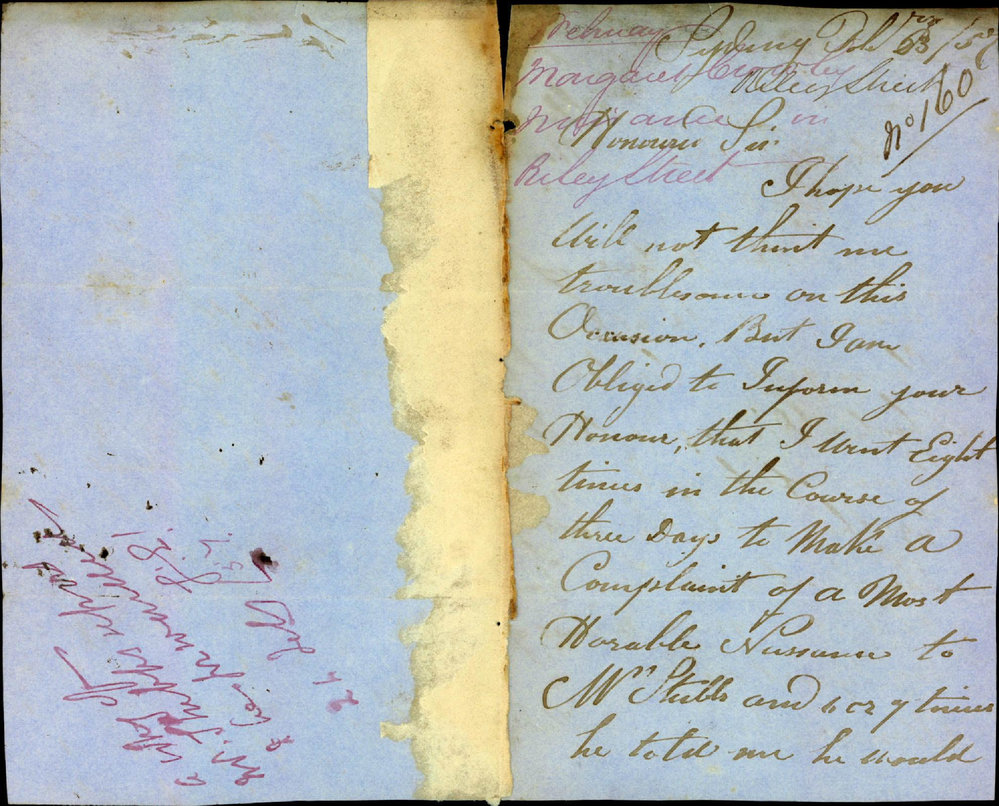 Sydney Feb 23rd/57
Riley Street
No 160
Margaret Crowley
Nuisance in
Riley Street
Honoured Sir
I hope you
Will not think me
troublesome on this
Occasion. But I am
Obliged to Inform your
Honour, that I went Eight
times in the Course of
three Days to Make A
Complaint of A Most
Horable Nussance to
Mr Stubbs and 6 or 7 times
he told me he would
Mr Stubbs